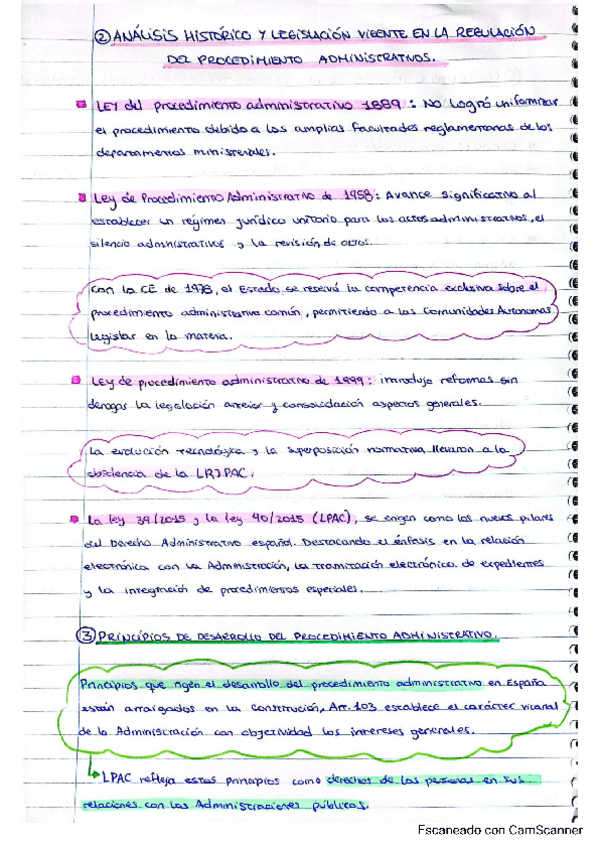 ② ANÁLISIS HISTÓRICO Y LEGISLACIÓN VIGENTE EN LA REGULACIÓN
DEL PROCEDIMIENTO ADMINISTRATIVOS.
LEY del procedimiento administrativo 1889: No logró uniformizar
el procedimiento debido a las amplias facultades reglamentarias de los
departamentos ministeriales.
Ley de Procedimiento Administrativo de 1958: Avance significativo al
establecer un régimen jurídico unitario para los actos administrativos, el
silencio administrativos y la revisión de actos.
Con la CE de 1978, el Estado se reservó la competencia exclusiva sobre el
procedimiento administrativo común, permitiendo a las Comunidades Autonomas
legislar en la materia.
Ley de procedimiento administrativo de 1999: introdujo reformas sin
derogar la legislación anterior y consolidación aspectos generales.
La evolución tecnológica y la superposición normativa llevaron a la
obsolencia de la LRJPAC.
La ley 39/2015 y la ley 40/2015 (LPAC), se erigen como los nuevos pilares
del Derecho Administrativo español. Destacando el énfasis en la relación
electrónica con la Administración, la tramitación electrónica de expedientes
y la integración de procedimientos especiales.
③ PRINCIPIOS DE DESARROLLO DEL PROCEDIMIENTO ADMINISTRATIVO.
Principios que rigen el desarrollo del procedimiento administrativo en España
están arraigados en la constitución, Art. 103 establece el carácter vicarial
de la Administración con objetividad los intereses generales.
LPAC refleja estas principios como derechos de las personas en sus
relaciones con las Administraciones públicas.
Escaneado con CamScanner